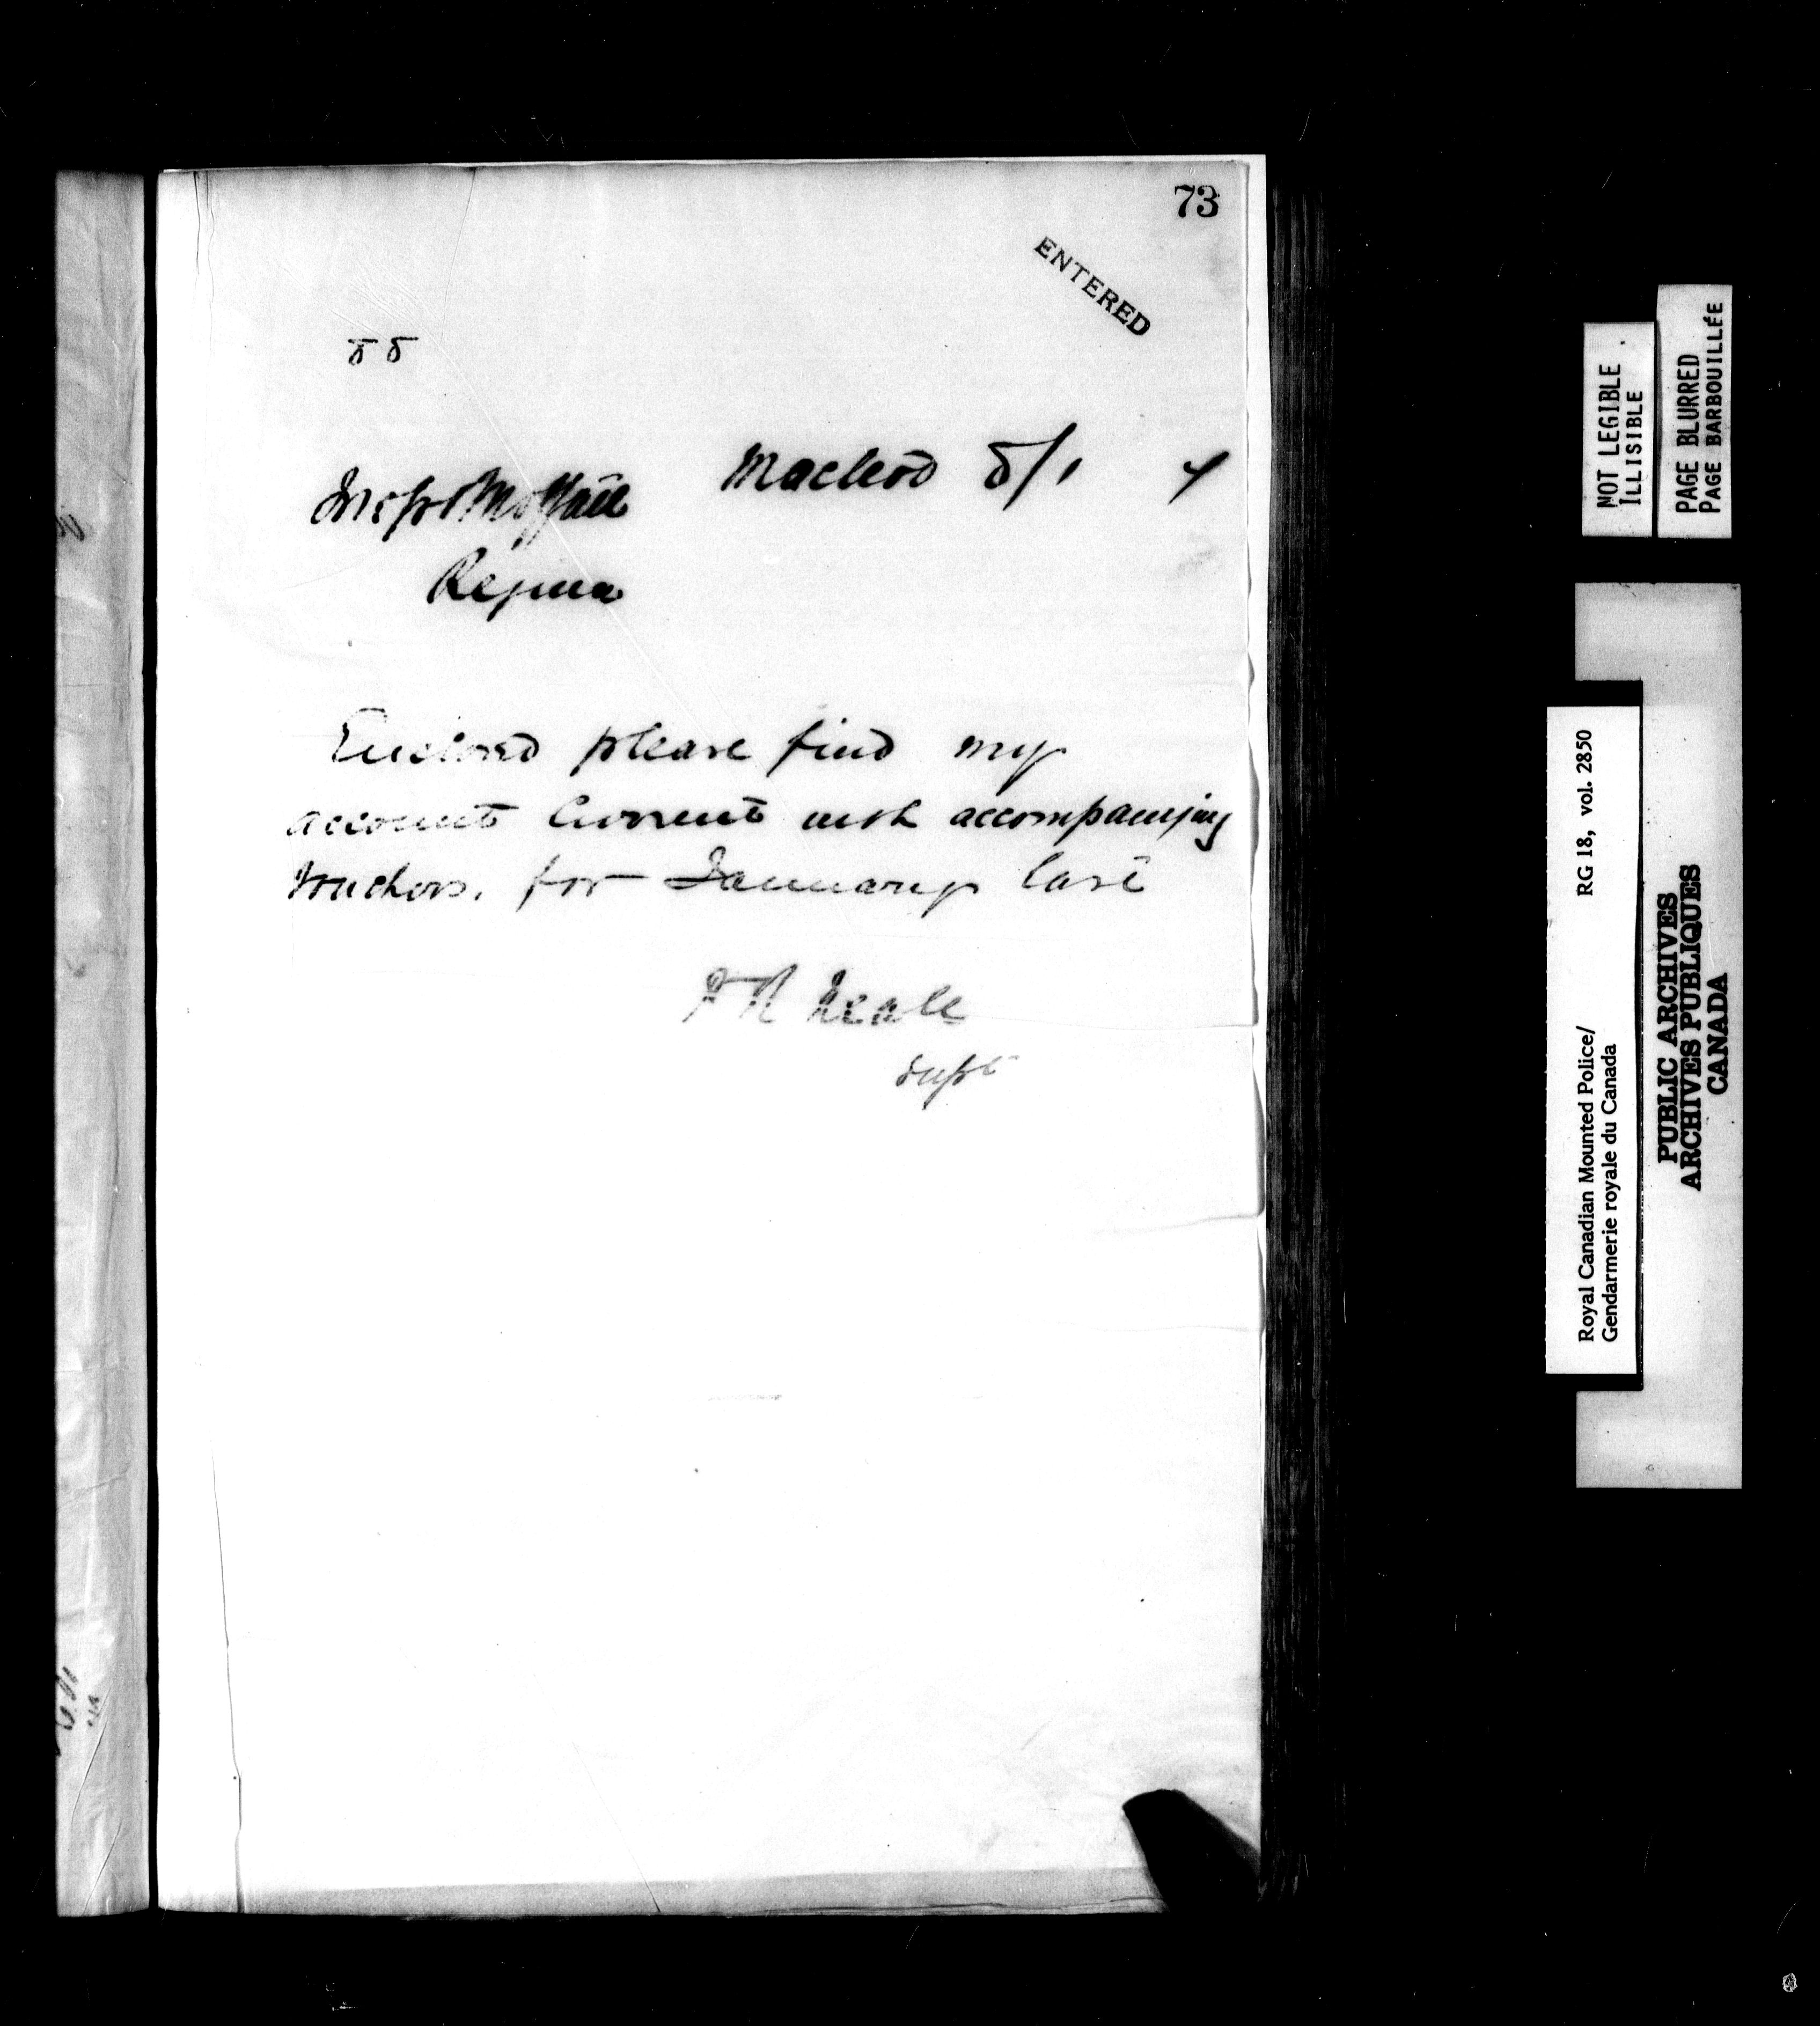 73
ENTERED
88
Macleod 8/1 7
Inspr Moffatt
Regina
Enclosed please find my
account Current with accompanying
vouchers, for January last
P R Neale
Supt
NOT LEGIBLE
ILLISIBLE
PAGE BLURRED
PAGE BARBOUILLÉE
RG 18, vol. 2850
Royal Canadian Mounted Police/
Gendarmerie royale du Canada
PUBLIC ARCHIVES
ARCHIVES PUBLIQUES
CANADA